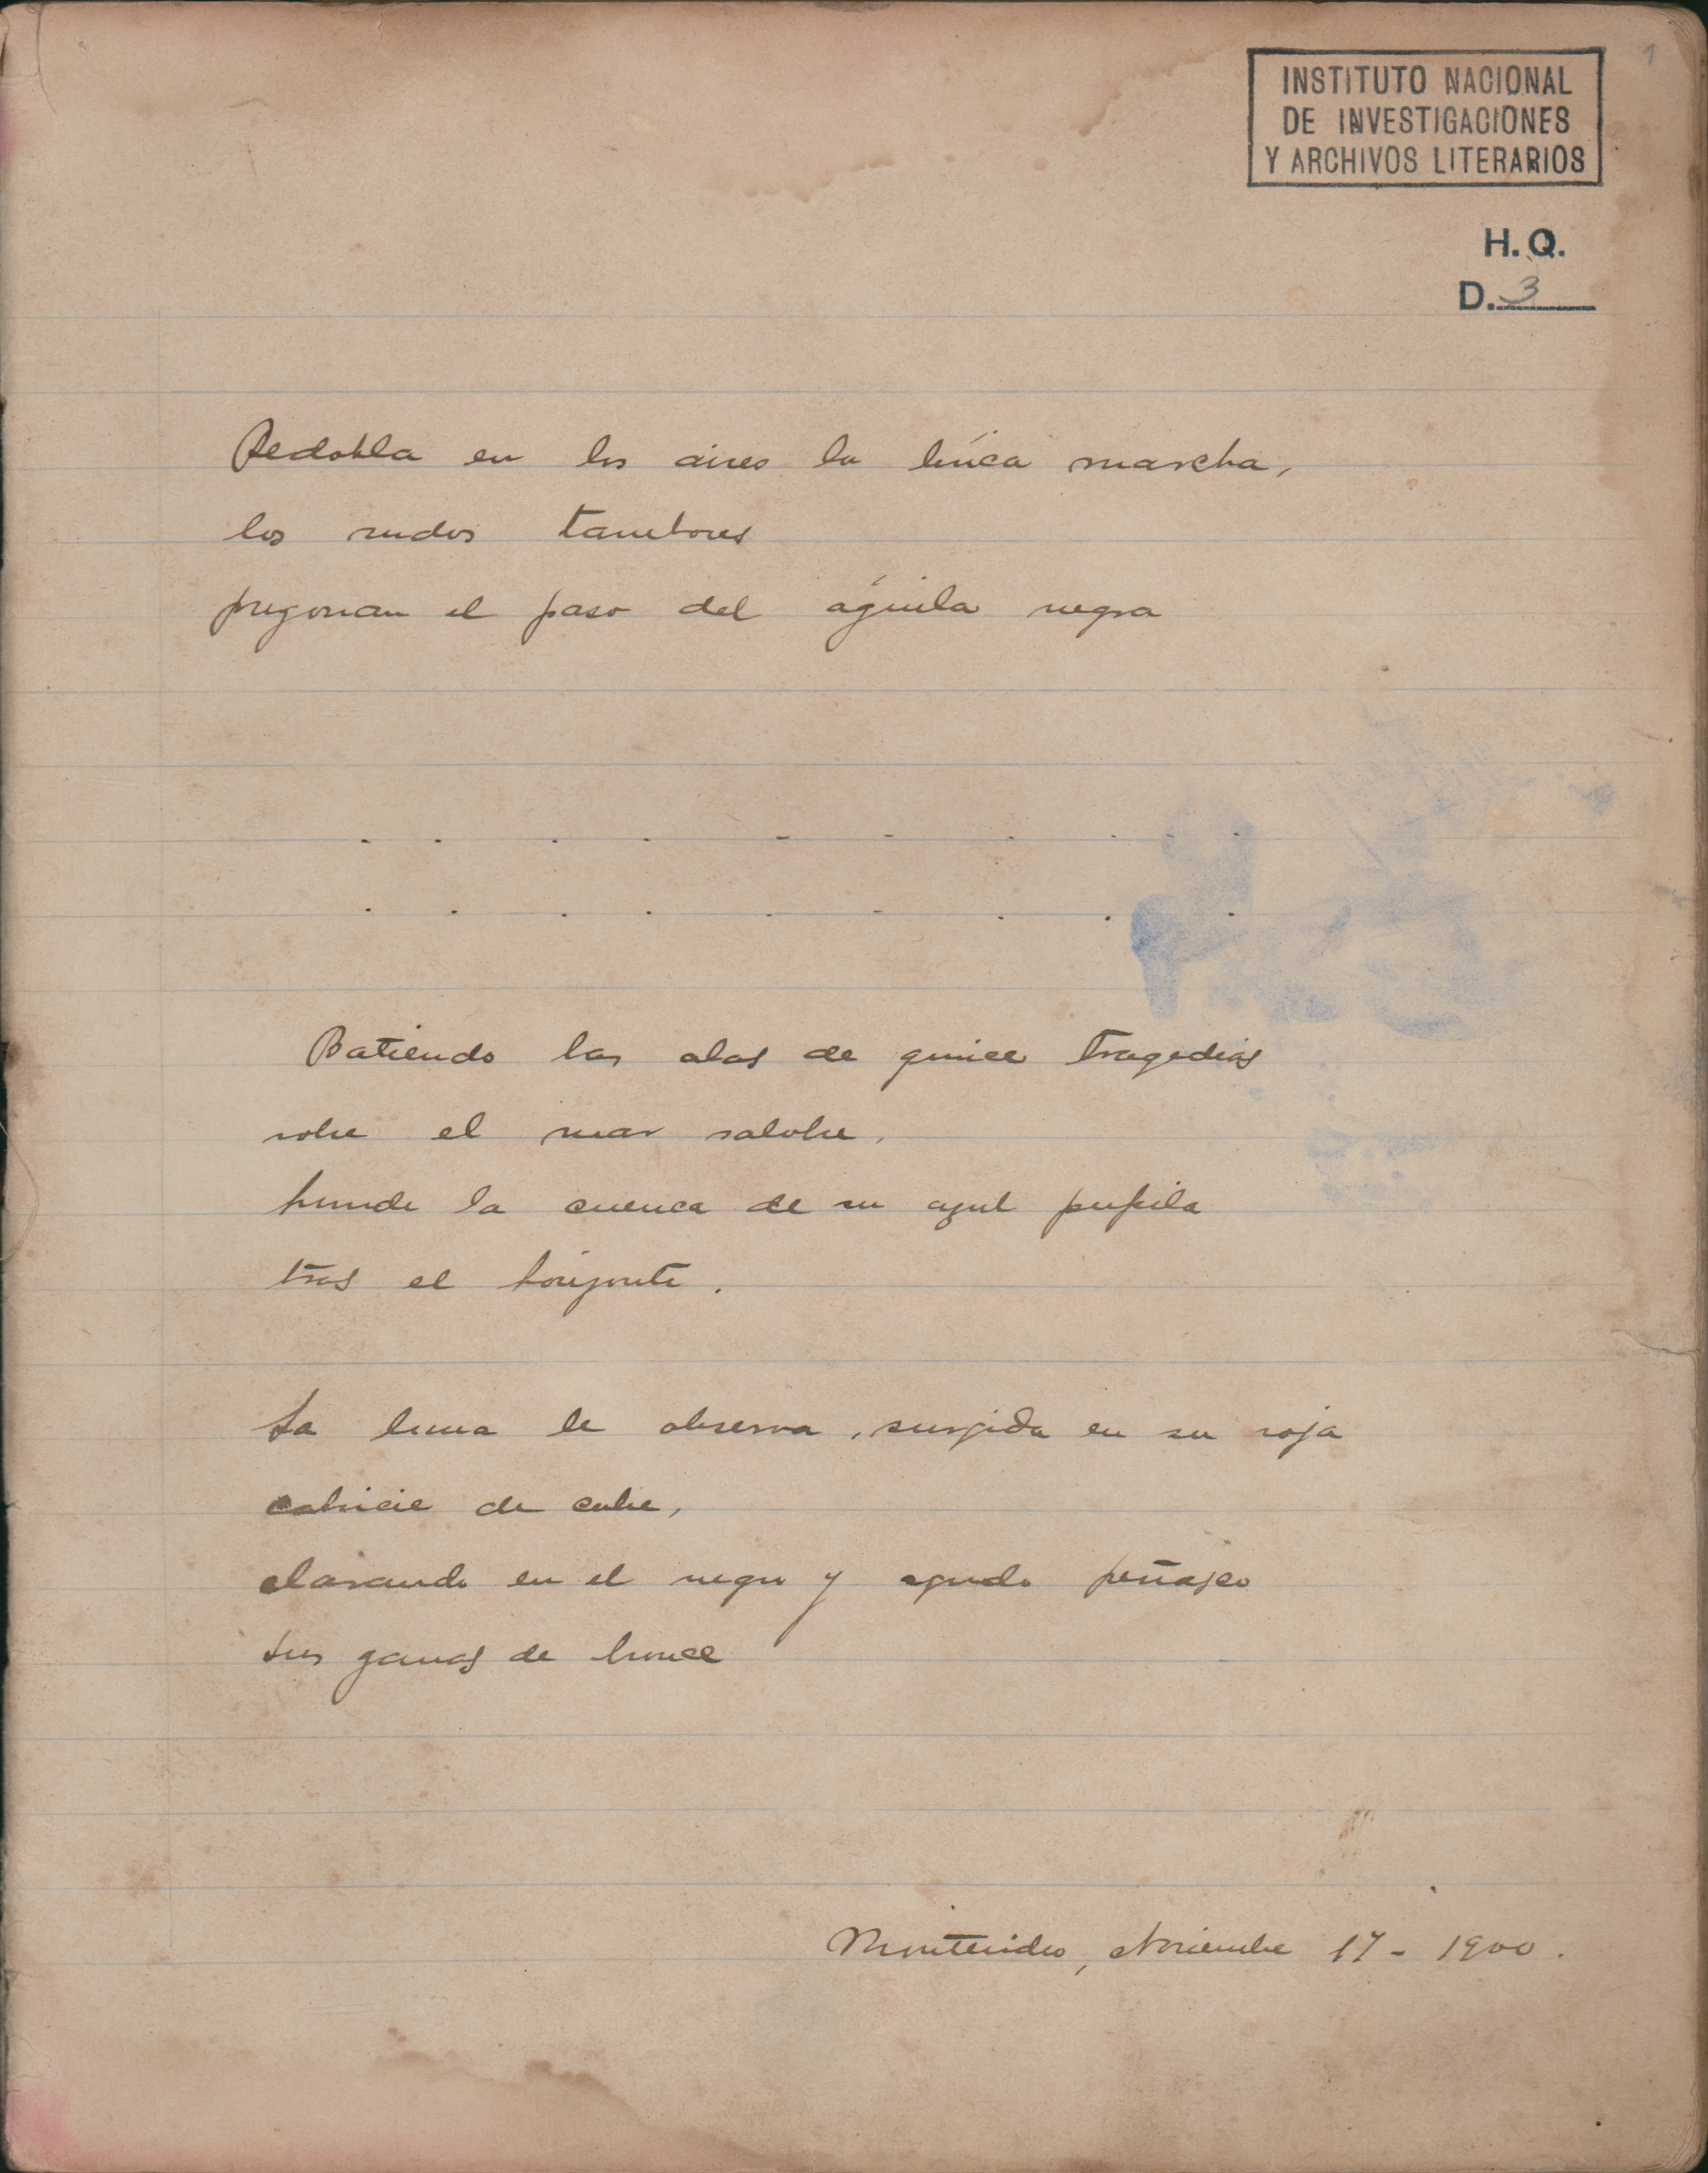 1
INSTITUTO NACIONAL
DE INVESTIGACIONES
Y ARCHIVOS LITERARIOS
H. Q.
D. 3
Redobla en los aires la lírica marcha,
los rudos tambores
pregonan el paso del águila negra
. . . . . . . . . .
. . . . . . . . .
Batiendo las alas de quince tragedias
sobre el mar salobre,
hunde la cuenca de su azul pupila
tras el horizonte.
La luna le observa, surgida en su roja
calvicie de cobre,
clavando en el negro y agudo peñasco
sus garras de bronce
Montevideo, Noviembre 17 - 1900.